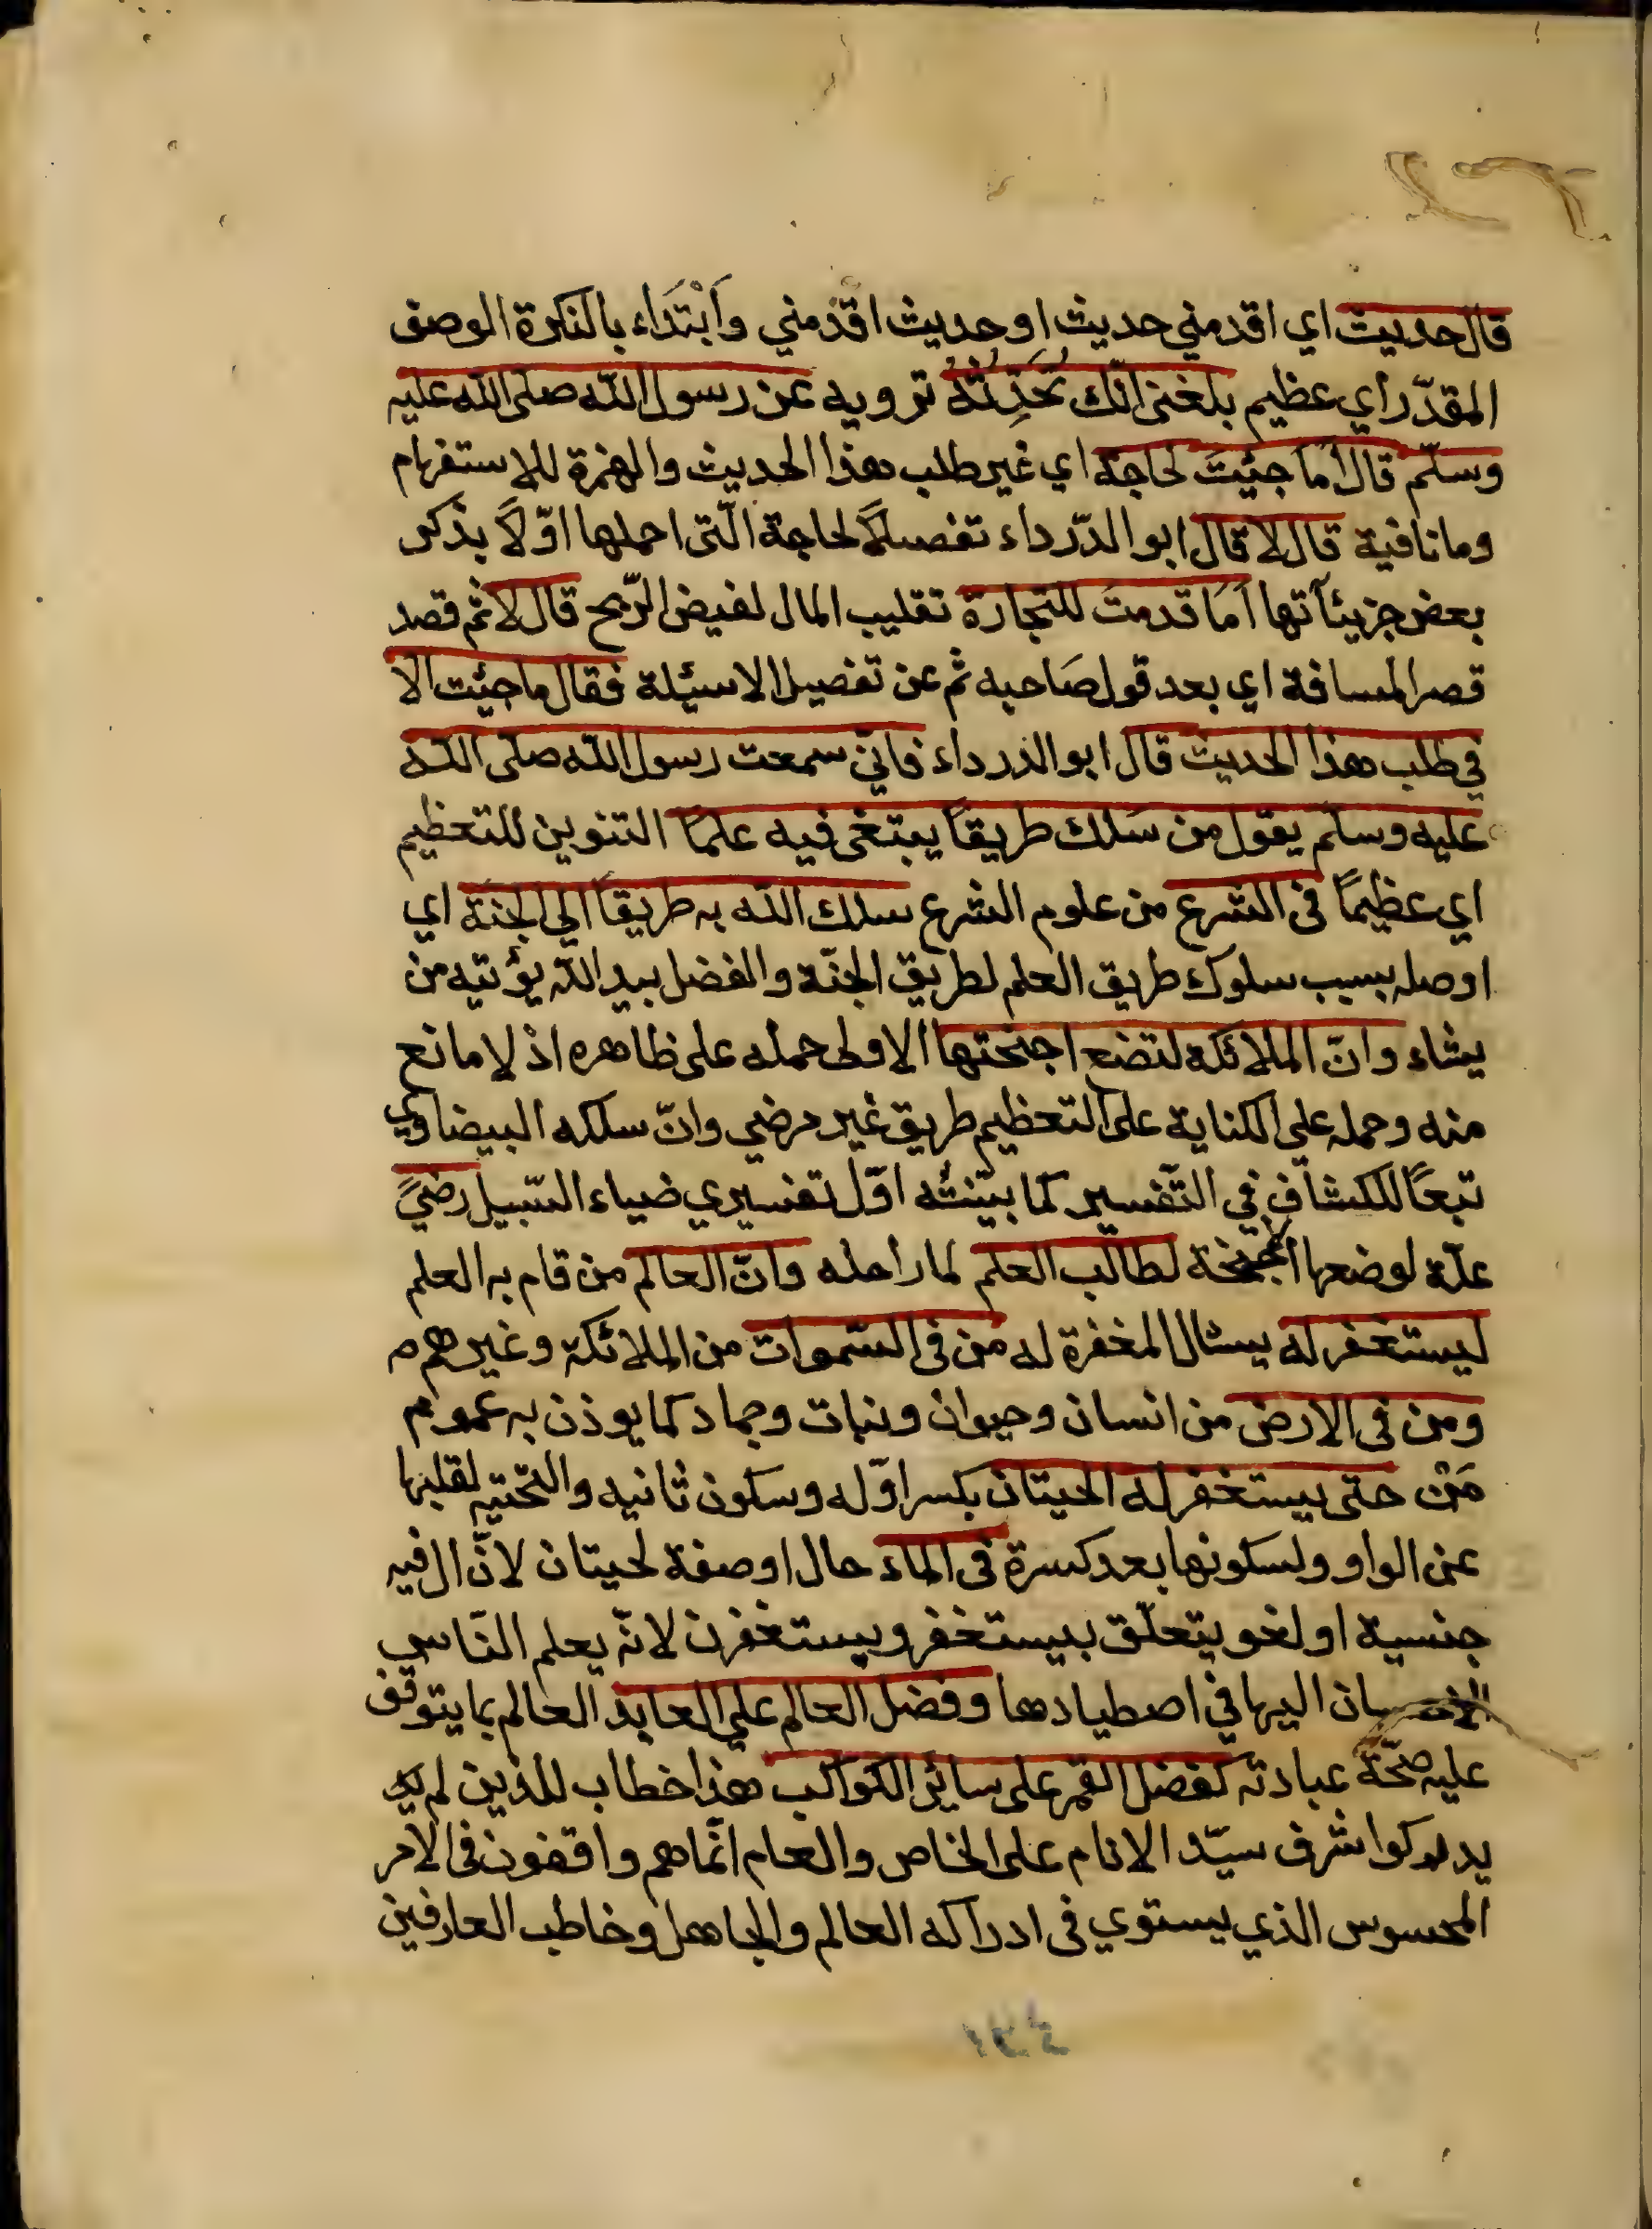 قال حديث اي اقدمني حديث او حديث اقدمني وابتداء بالنكرة الوصف
المقدّر أي عظيم بلغني انّك تحدّثه ترويه عن رسول الله صلى الله عليه
وسلّم قال أما جئت لحاجة اي غير طلب هذا الحديث والهمزة للاستفهام
وما نافية قال لا قال ابو الدّرداء تفصيلا لحاجة الّتى اجملها اوّلاً بذكر
بعض جزيئآتها أما قدمت للتجارة تقليب المال لفيض الرّبح قال لا ثم قصد
قصر المسافة اي بعد قول صاحبه ثم عن تفصيل الاسئلة فقال ما جئت الا
في طلب هذا الحديث قال ابو الدرداء فانّي سمعت رسول الله صلى الله
عليه وسلم يقول من سلك طريقاً يبتغى فيه علماً التنوين للتعظيم
اي عظيماً فى الشرع من علوم الشرع سلك الله به طريقاً الي الجنة اي
اوصله بسبب سلوك طريق العلم لطريق الجنّة والفضل بيد الله يؤتيه من
يشاء وانّ الملائكة لتضع اجنحتها الاولى حمله على ظاهره اذ لا مانع
منه وحمله علي الكناية على التعظيم طريق غير مرضي وانّ سلكه البيضاوي
تبعاً للكشاف في التّفسير كما بيّنته اوّل تفسيري ضياء السّبيل رضىً
علّة لوضعها الاجنحة لطالب العلم لما راعله وانّ العالم من قام به العلم
ليستغفر له يسئال المغفرة له من فى السّموات من الملائكة وغيرهم
ومن فى الارض من انسان وحيوان ونبات وجماد كما يوذن به عموم
مَنْ حتى يستغفر له الحيتان بكسر اوّله وسكون ثانيه والتحتيه لقلبها
عن الواو ولسكونها بعد كسرة فى الماء حال او صفة لحيتان لانّ ال فيه
جنسية او لغو يتعلّق بيستغفر ويستغفرن لانّه يعلم النّاس
الاحسان اليها في اصطيادها وفضل العالم علي العابد العالم بما يتوقف
عليه صحّة عبادته كفضل القمر على سائر الكواكب هذا خطاب للذين لم يد
يدركوا شرف سيّد الانام على الخاص والعام انّما هم واقفون فى الامر
المحسوس الذي يستوي فى ادراكه العالم والجاهل وخاطب العارفين